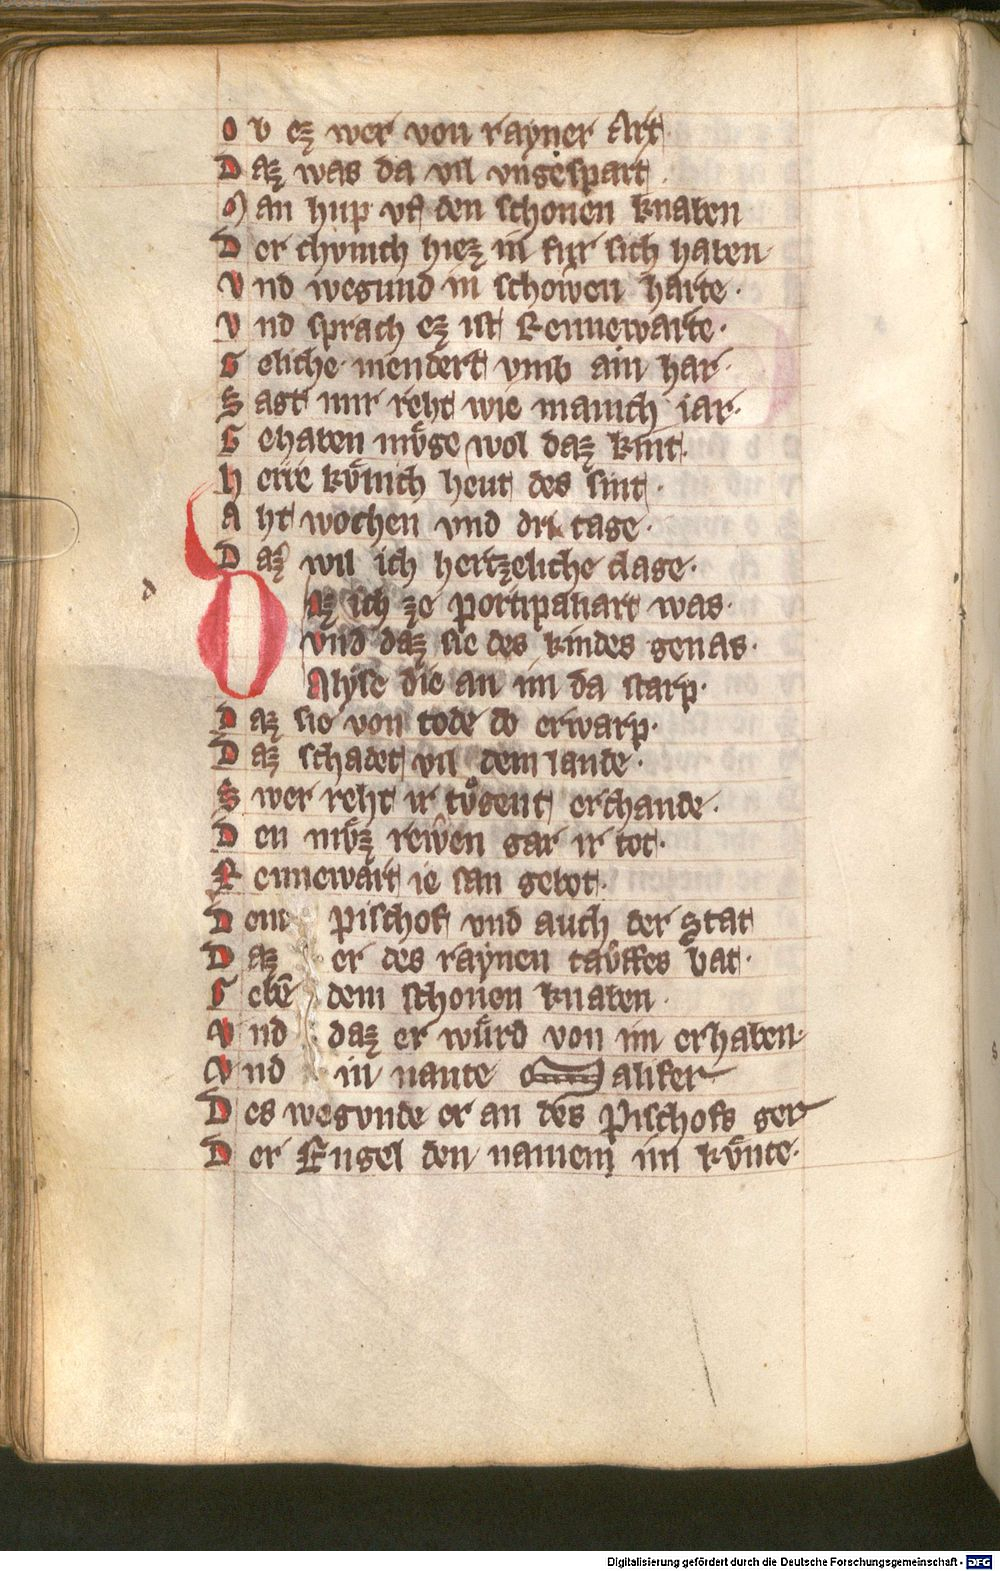 O b ez wer von rayner Art
D az was da vil vngespart.
M an hup vf den schonen knaben
D er chvnich hiez in fur sich haben·
V nd wegund in schowen harte·
V nd sprach ez ist Rennewarte·
G eliche mendert vmb ain har·
S agt mir reht wie manich iar·
G ehaben mvͤge wol daz kint·
H erre kvͤnich heut des sint·
A ht wochen vnd dri tage·
D az wil ich hertzeliche clage·
d
D az ich ze portipaliart was·
vnd daz sie des kindes genas·
Alyse die an im da starp·
D az sie von tode do erwarp·
D az schadet vil dem lande·
S wer reht ir tvͦgent erchande·
D en mvͤz rewen gar ir tot·
R ennewart ie san gebot·
D em Pischof vnd auch der Stat
D az er des raynen tauffes bat·
G ebē dem schonen knaben·
V nd daz er wuͤrd von im erhaben·
V nd in nante Malifer
D es wegvnde er an des Pischofs ger
D er Engel den namem im kvͤnte·
Digitalisierung gefördert durch die Deutsche Forschungsgemeinschaft - DFG